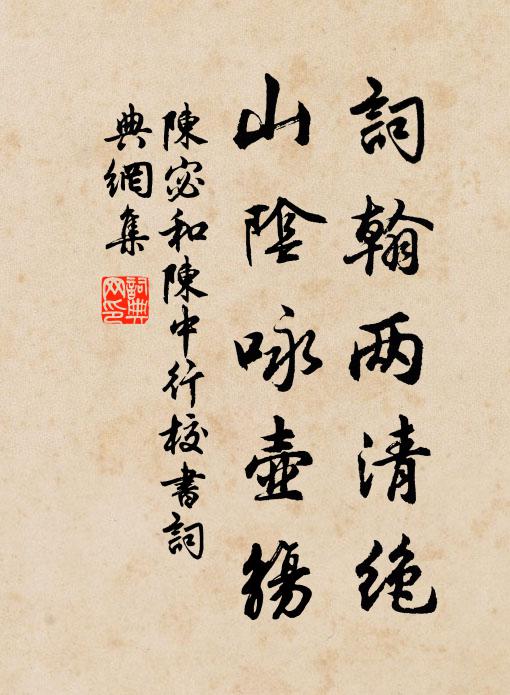 詞翰两清绝
山陰咏壺觴
陳宓和陳中行校書詞
典網集
詞典
网印